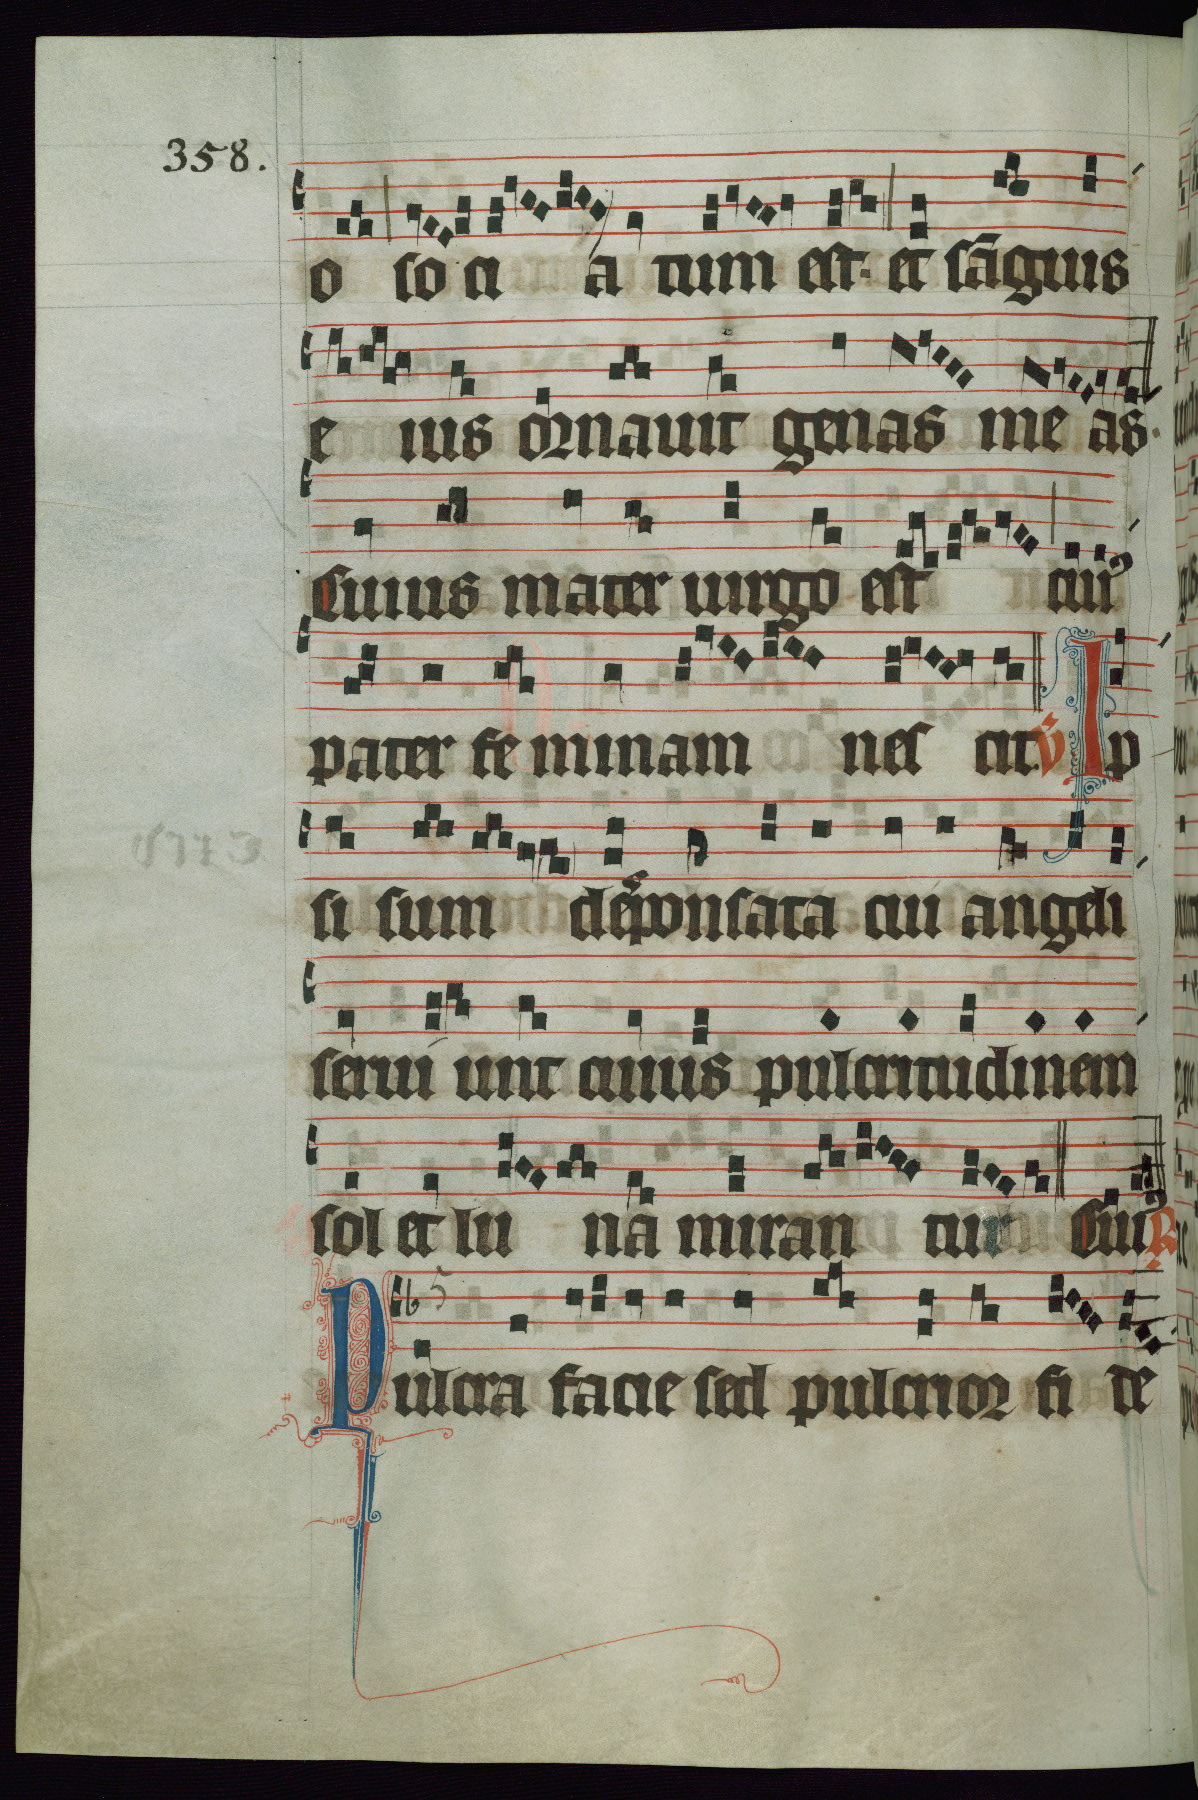 358.
o so ci a tum est. et sāguis
e ius ornauit genas me as.
Cuius mater uirgo est cui'
pater fe minam nes cit. V Ip
si sum desponsata cui angeli
serui unt cuius pulcritudinem
sol et lu na miran tur Cui' R
5
Pulcra facie sed pulcrior fi de